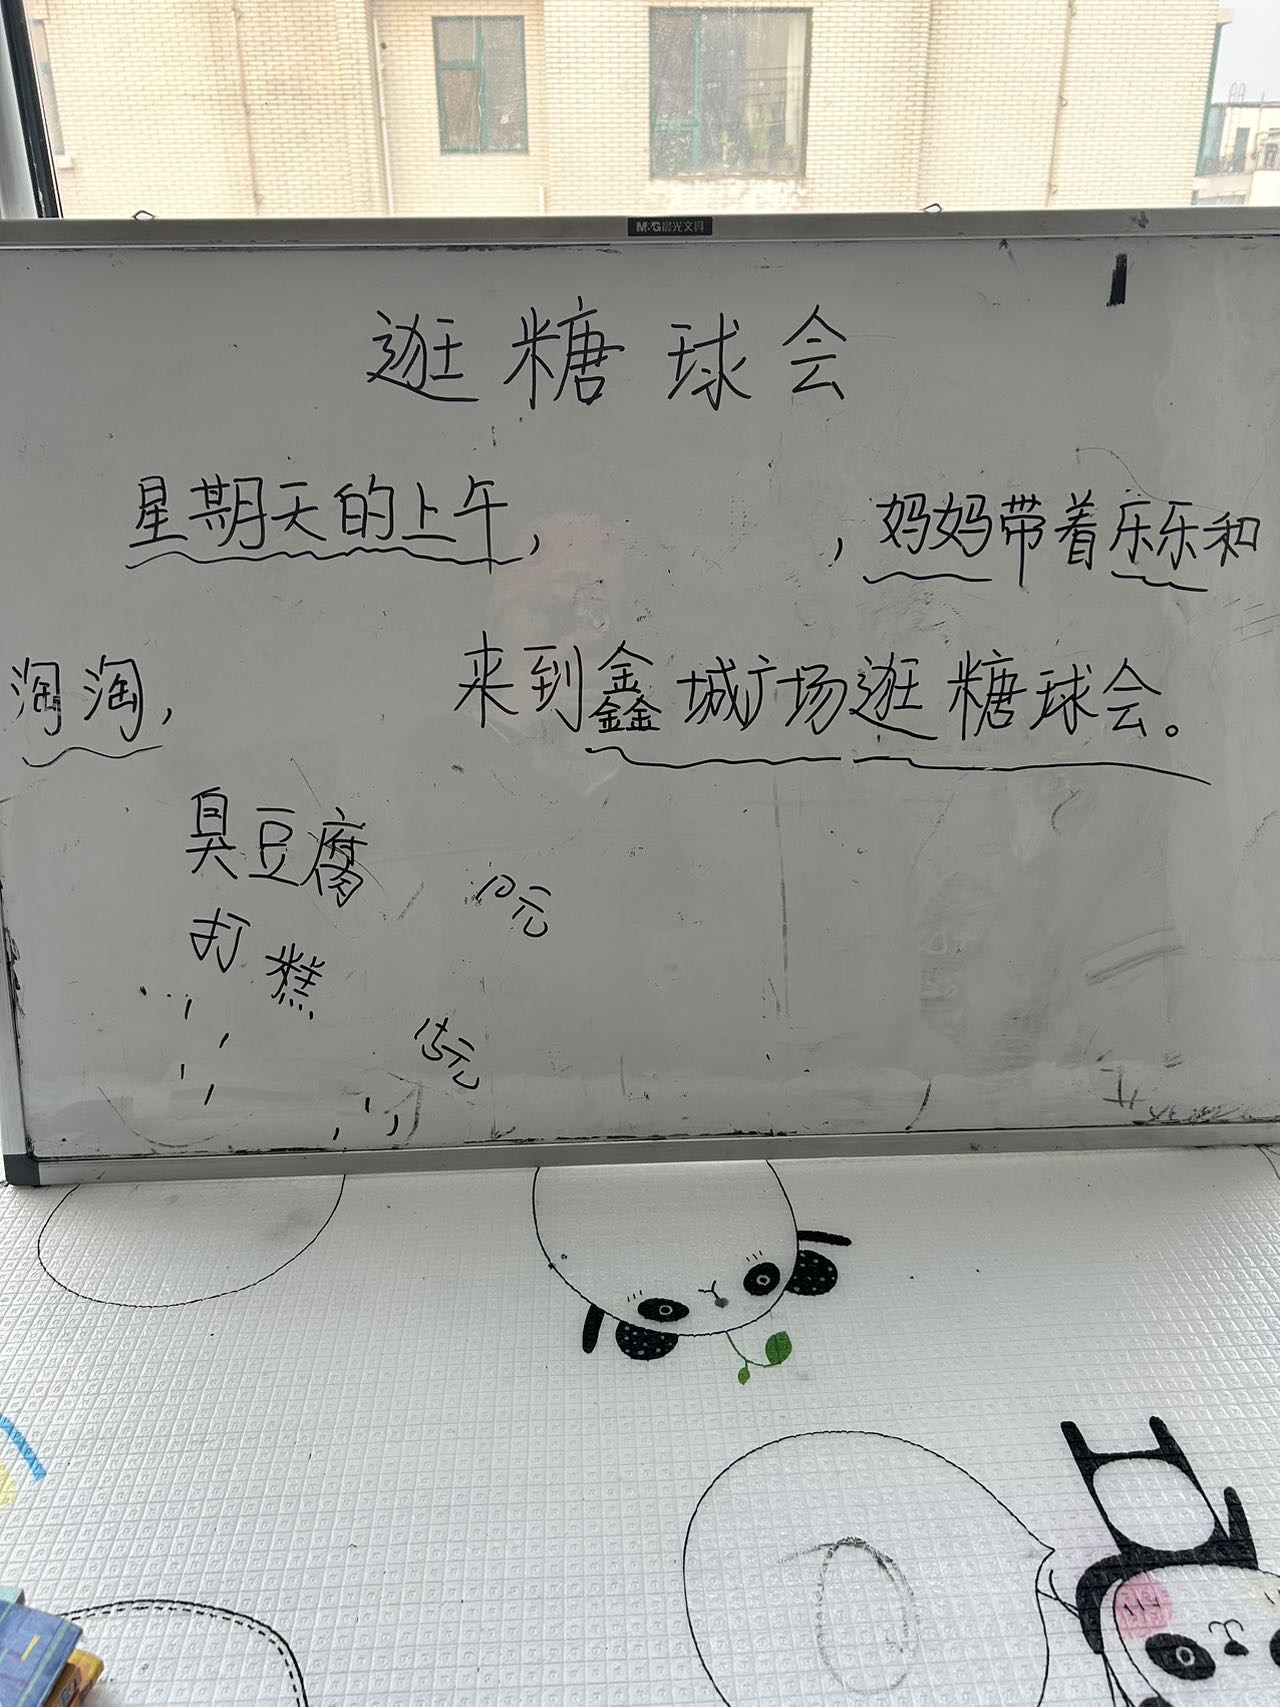 M&G晨光文具
逛糖球会
星期天的上午, , 妈妈带着乐乐和
淘淘, 来到鑫城广场逛糖球会。
臭豆腐 10元
打糕
15元